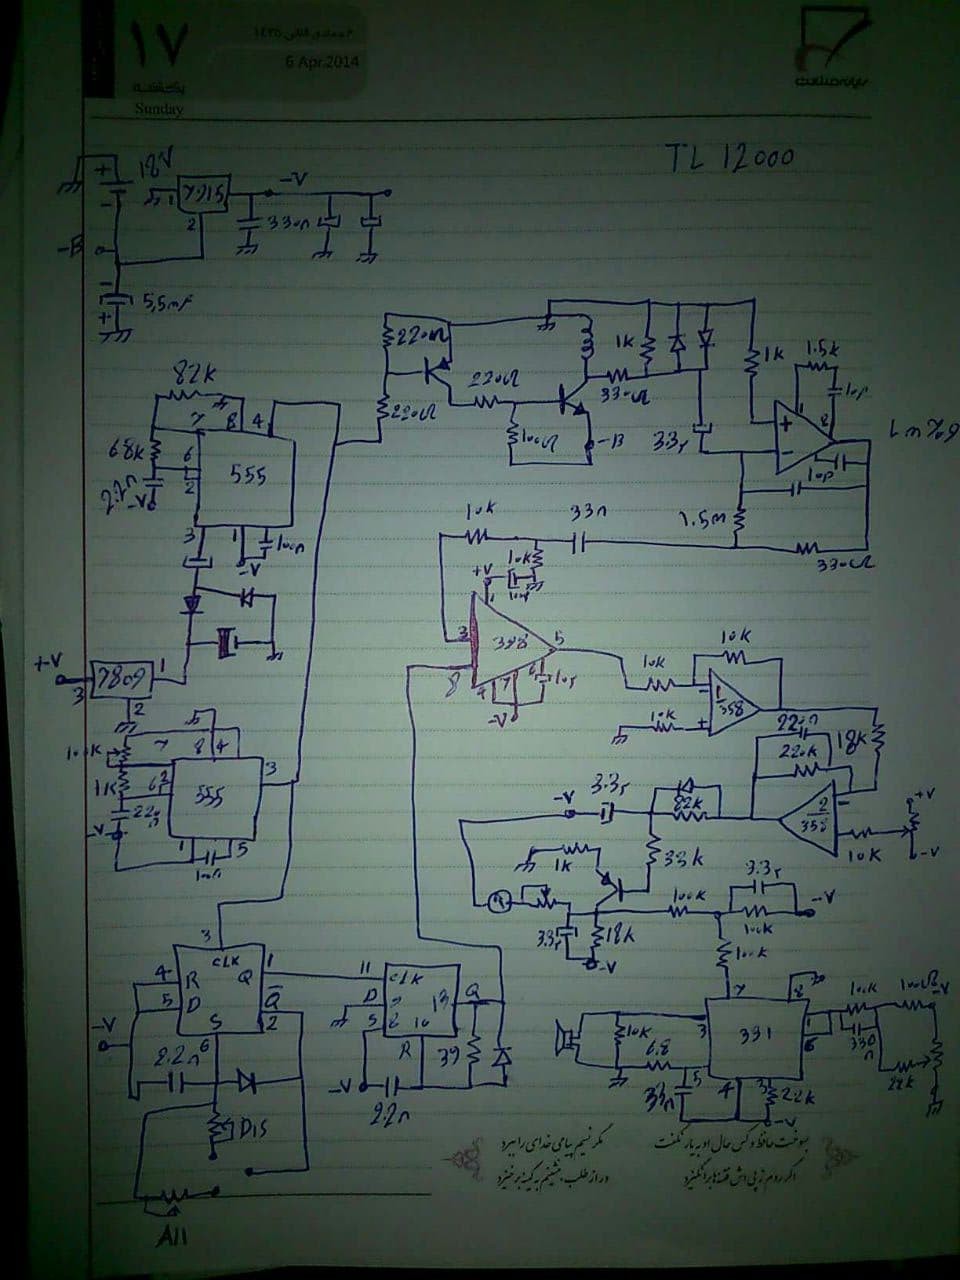 ۱۷
یکشنبه
Sunday
۶ جمادی الثانی ۱۴۳۵
6 Apr.2014
TL 12000
+ 18V
-
-B
7915
1
2
-V
330n
-
+
82k
7
8
4
68k
6
2
2.2n
-V
555
3
1
100n
-V
+V
3
7809
1
2
7
8
4
1k
6
2
22n
-V
555
3
1
5
10n
220Ω
220Ω
220Ω
100Ω
-B
1k
330Ω
3.3r
1k
1.5k
10p
+
-
8
10p
1.5m
330Ω
33n
10k
10k
+V
3
398
5
8
4
7
6
-V
10k
10k
10k
1
358
-
+
22n
220k
18k
2
358
-
+V
10k
-V
3.3r
-V
82k
33k
1k
3.3r
18k
-V
100k
3.3r
100k
-V
100k
3
CLK
4
R
Q
1
5
D
Q
2
S
6
-V
2.2n
DIS
All
11
CLK
D
13
Q
10
R
39
-V
2.2n
10k
6.8
33n
3
5
7
8
331
1
6
4
2.2k
-V
100k
330n
22k
-V
بسوخت حافظ و کس حال او به یار نگفت
مگر نسیم پیامی خدای را ببرد
اگر روم ز پی اش فتنه ها برانگیزد
ور از طلب بنشینم به کینه برخیزد